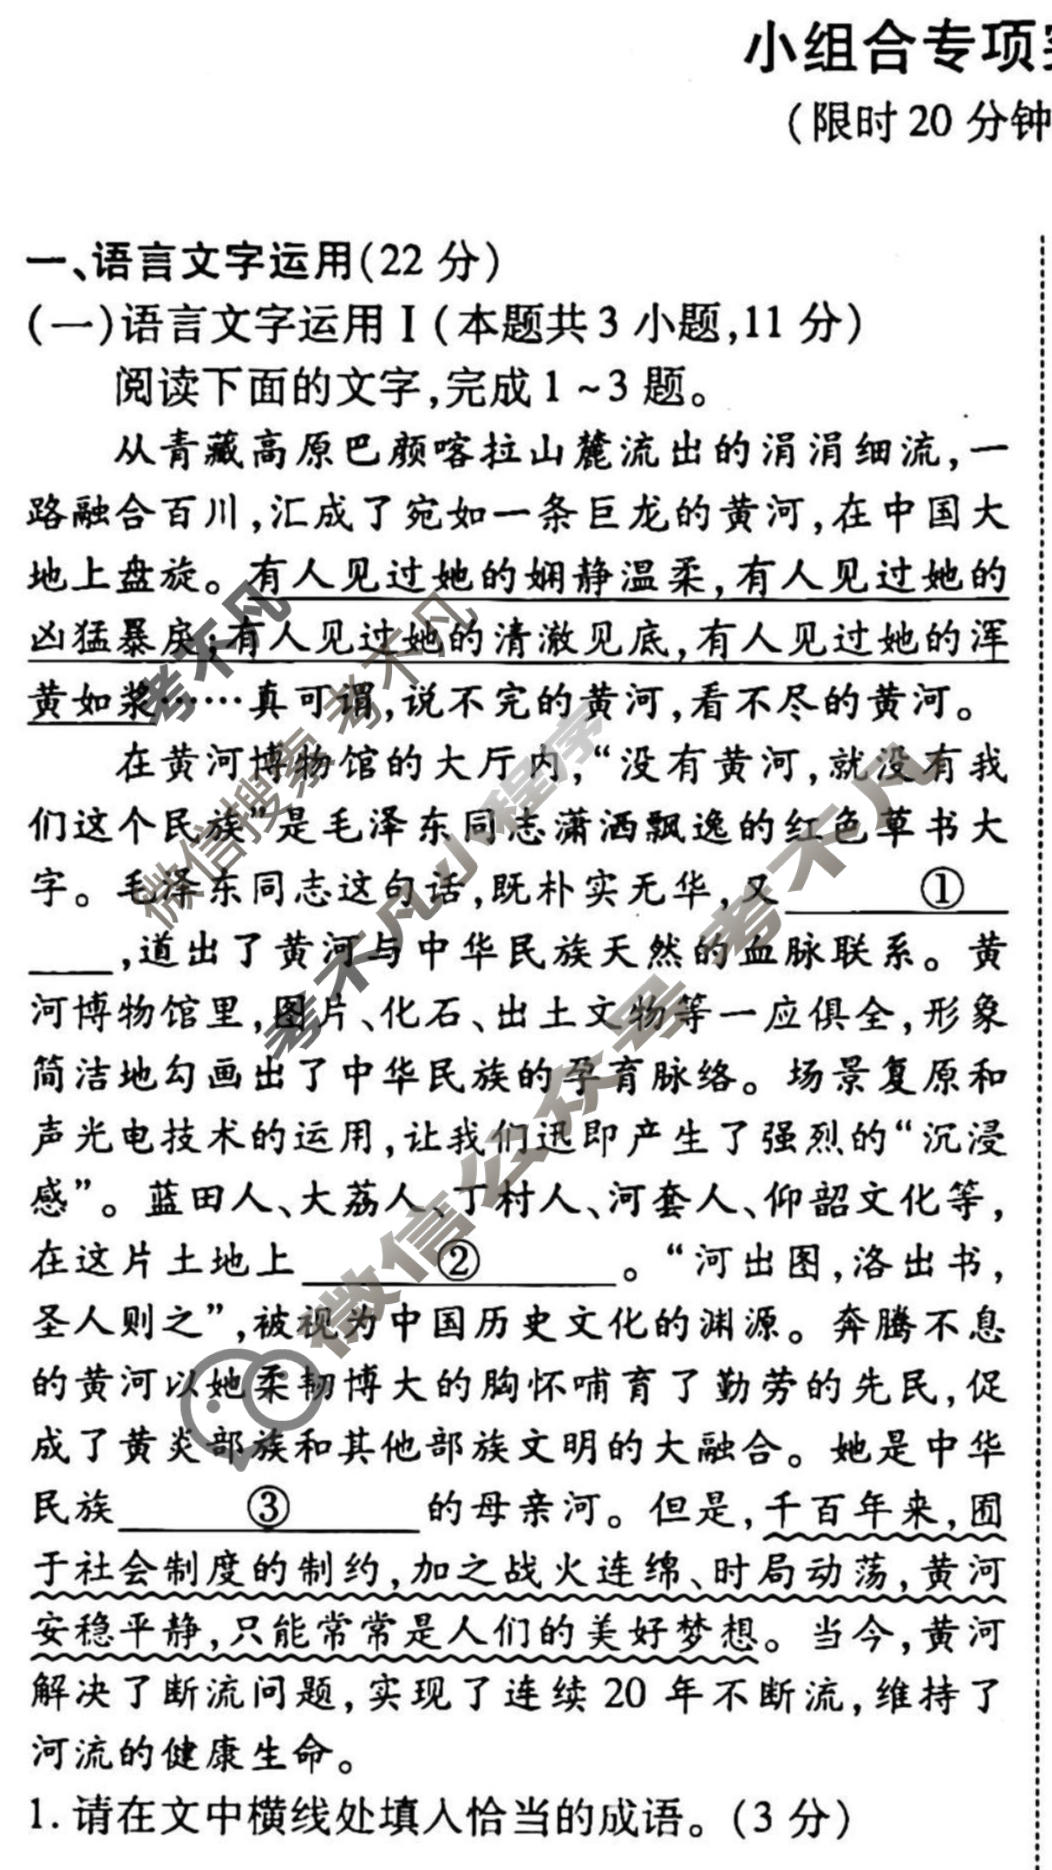 小组合专项
（限时20分钟
一、语言文字运用（22分）
（一）语言文字运用Ⅰ（本题共3小题，11分）
阅读下面的文字，完成1~3题。
从青藏高原巴颜喀拉山麓流出的涓涓细流，一
路融合百川，汇成了宛如一条巨龙的黄河，在中国大
地上盘旋。有人见过她的娴静温柔，有人见过她的
凶猛暴戾；有人见过她的清澈见底，有人见过她的浑
黄如浆……真可谓，说不完的黄河，看不尽的黄河。
在黄河博物馆的大厅内，“没有黄河，就没有我
们这个民族”是毛泽东同志潇洒飘逸的红色草书大
字。毛泽东同志这句话，既朴实无华，又 ①
，道出了黄河与中华民族天然的血脉联系。黄
河博物馆里，图片、化石、出土文物等一应俱全，形象
简洁地勾画出了中华民族的孕育脉络。场景复原和
声光电技术的运用，让我们迅即产生了强烈的“沉浸
感”。蓝田人、大荔人、丁村人、河套人、仰韶文化等，
在这片土地上 ② 。“河出图，洛出书，
圣人则之”，被视为中国历史文化的渊源。奔腾不息
的黄河以她柔韧博大的胸怀哺育了勤劳的先民，促
成了黄炎部族和其他部族文明的大融合。她是中华
民族 ③ 的母亲河。但是，千百年来，囿
于社会制度的制约，加之战火连绵、时局动荡，黄河
安稳平静，只能常常是人们的美好梦想。当今，黄河
解决了断流问题，实现了连续20年不断流，维持了
河流的健康生命。
1. 请在文中横线处填入恰当的成语。（3分）
考不凡
微信搜索 考不凡
考不凡小程序
微信公众号 考不凡